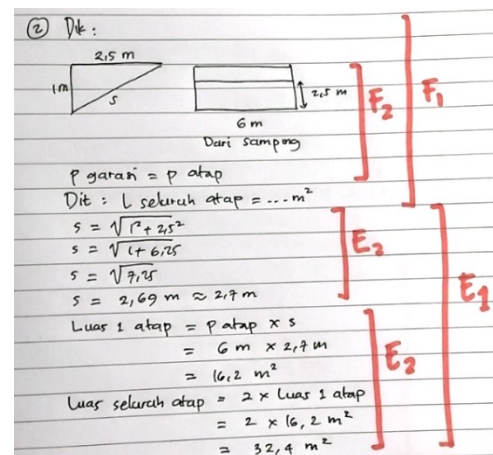 ② Dik :
2,5 m
1 m
s
2,5 m
6 m
Dari samping
F2
F1
P garasi = P atap
Dit : L seluruh atap = ... m²
s = √1² + 2,5²
s = √1 + 6,25
s = √7,25
s = 2,69 m ≈ 2,7 m
E2
E1
Luas 1 atap = P atap × s
= 6 m × 2,7 m
= 16,2 m²
E2
Luas seluruh atap = 2 × Luas 1 atap
= 2 × 16,2 m²
= 32,4 m²